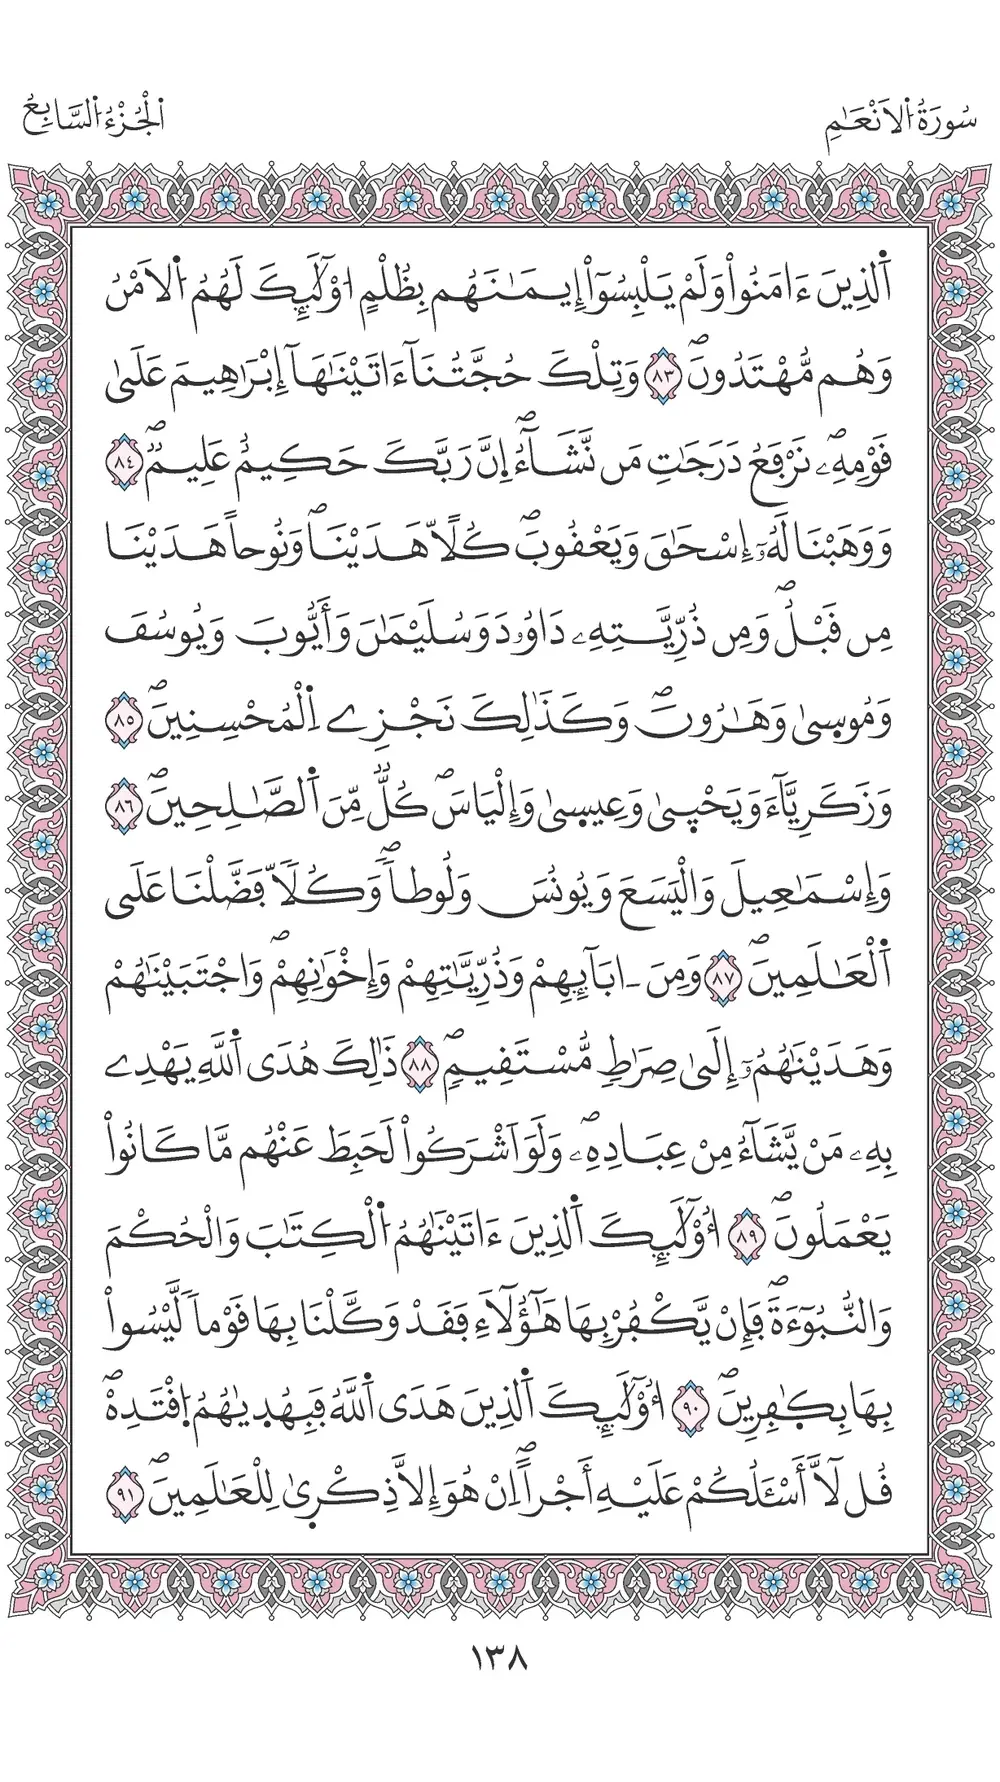 سُورَةُ اُ۬لَانْعَٰمِ
اَ۬لْجُزْءُ اُ۬لسَّابِعُ
اَ۬لذِينَ ءَامَنُواْ وَلَمْ يَلْبِسُوٓاْ إِيمَٰنَهُم بِظُلْمٍ ا۟وْلَٰٓئِكَ لَهُمُ اُ۬لَامْنُ
وَهُم مُّهْتَدُونَۖ ٨٣ وَتِلْكَ حُجَّتُنَآ ءَاتَيْنَٰهَآ إِبْرَٰهِيمَ عَلَىٰ
قَوْمِهِۦۖ نَرْفَعُ دَرَجَٰتِ مَن نَّشَآءُۖ اِنَّ رَبَّكَ حَكِيمٌ عَلِيمٌۖ ٨٤
وَوَهَبْنَا لَهُۥٓ إِسْحَٰقَ وَيَعْقُوبَۖ كُلّاً هَدَيْنَاۖ وَنُوحاً هَدَيْنَا
مِن قَبْلُۖ وَمِن ذُرِّيَّتِهِۦ دَاوُۥدَ وَسُلَيْمَٰنَ وَأَيُّوبَ وَيُوسُفَ
وَمُوسىٰ وَهَٰرُونَۖ وَكَذَٰلِكَ نَجْزِے اِ۬لْمُحْسِنِينَۖ ٨٥
وَزَكَرِيَّآءَ وَيَحْيىٰ وَعِيسىٰ وَإِلْيَاسَۖ كُلّٞ مِّنَ اَ۬لصَّٰلِحِينَۖ ٨٦
وَإِسْمَٰعِيلَ وَالْيَسَعَ وَيُونُسَ وَلُوطاٗۖ وَكُلّاٗ فَضَّلْنَا عَلَى
اَ۬لْعَٰلَمِينَۖ ٨٧ وَمِنَ ـ ابَآئِهِمْ وَذُرِّيَّٰتِهِمْ وَإِخْوَٰنِهِمْۖ وَاجْتَبَيْنَٰهُمْ
وَهَدَيْنَٰهُمُۥٓ إِلَىٰ صِرَٰطٖ مُّسْتَقِيمٖۖ ٨٨ ذَٰلِكَ هُدَى اَ۬للَّهِ يَهْدِے
بِهِۦ مَنْ يَّشَآءُ مِنْ عِبَادِهِۦۖ وَلَوَ اَشْرَكُواْ لَحَبِطَ عَنْهُم مَّا كَانُواْ
يَعْمَلُونَۖ ٨٩ ا۟وْلَٰٓئِكَ اَ۬لذِينَ ءَاتَيْنَٰهُمُ اُ۬لْكِتَٰبَ وَالْحُكْمَ
وَالنُّبُوٓءَةَۖ فَإِنْ يَّكْفُرْ بِهَا هَٰٓؤُلَآءِ فَقَدْ وَكَّلْنَا بِهَا قَوْماٗ لَّيْسُواْ
بِهَا بِكٰ۪فِرِينَۖ ٩٠ ا۟وْلَٰٓئِكَ اَ۬لذِينَ هَدَى اَ۬للَّهُ فَبِهُد۪يٰهُمُ اُ۪قْتَدِهْۖ
قُل لَّآ أَسْـَٔلُكُمْ عَلَيْهِ أَجْراًۖ اِنْ هُوَ إِلَّا ذِكْر۪يٰ لِلْعَٰلَمِينَۖ ٩١
١٣٨